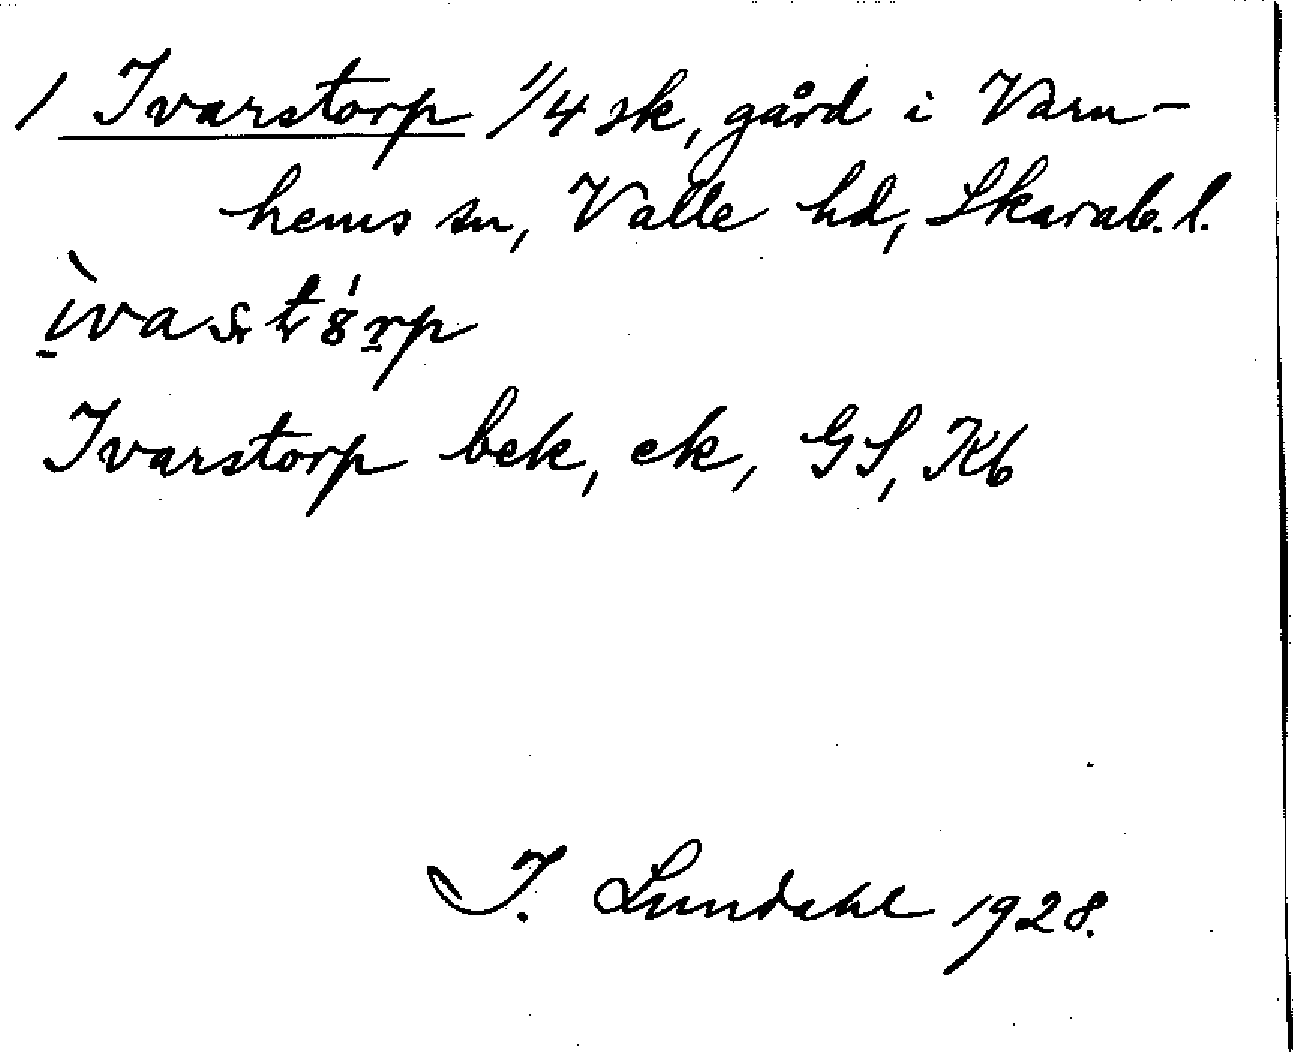 / Ivarstorp 1/4 sk, gård i Varn-
hems sn, Valle hd, Skarab. l.
ìvastór̲p
Ivarstorp bek, ek, GS, Kb
I. Lundahl 1928.